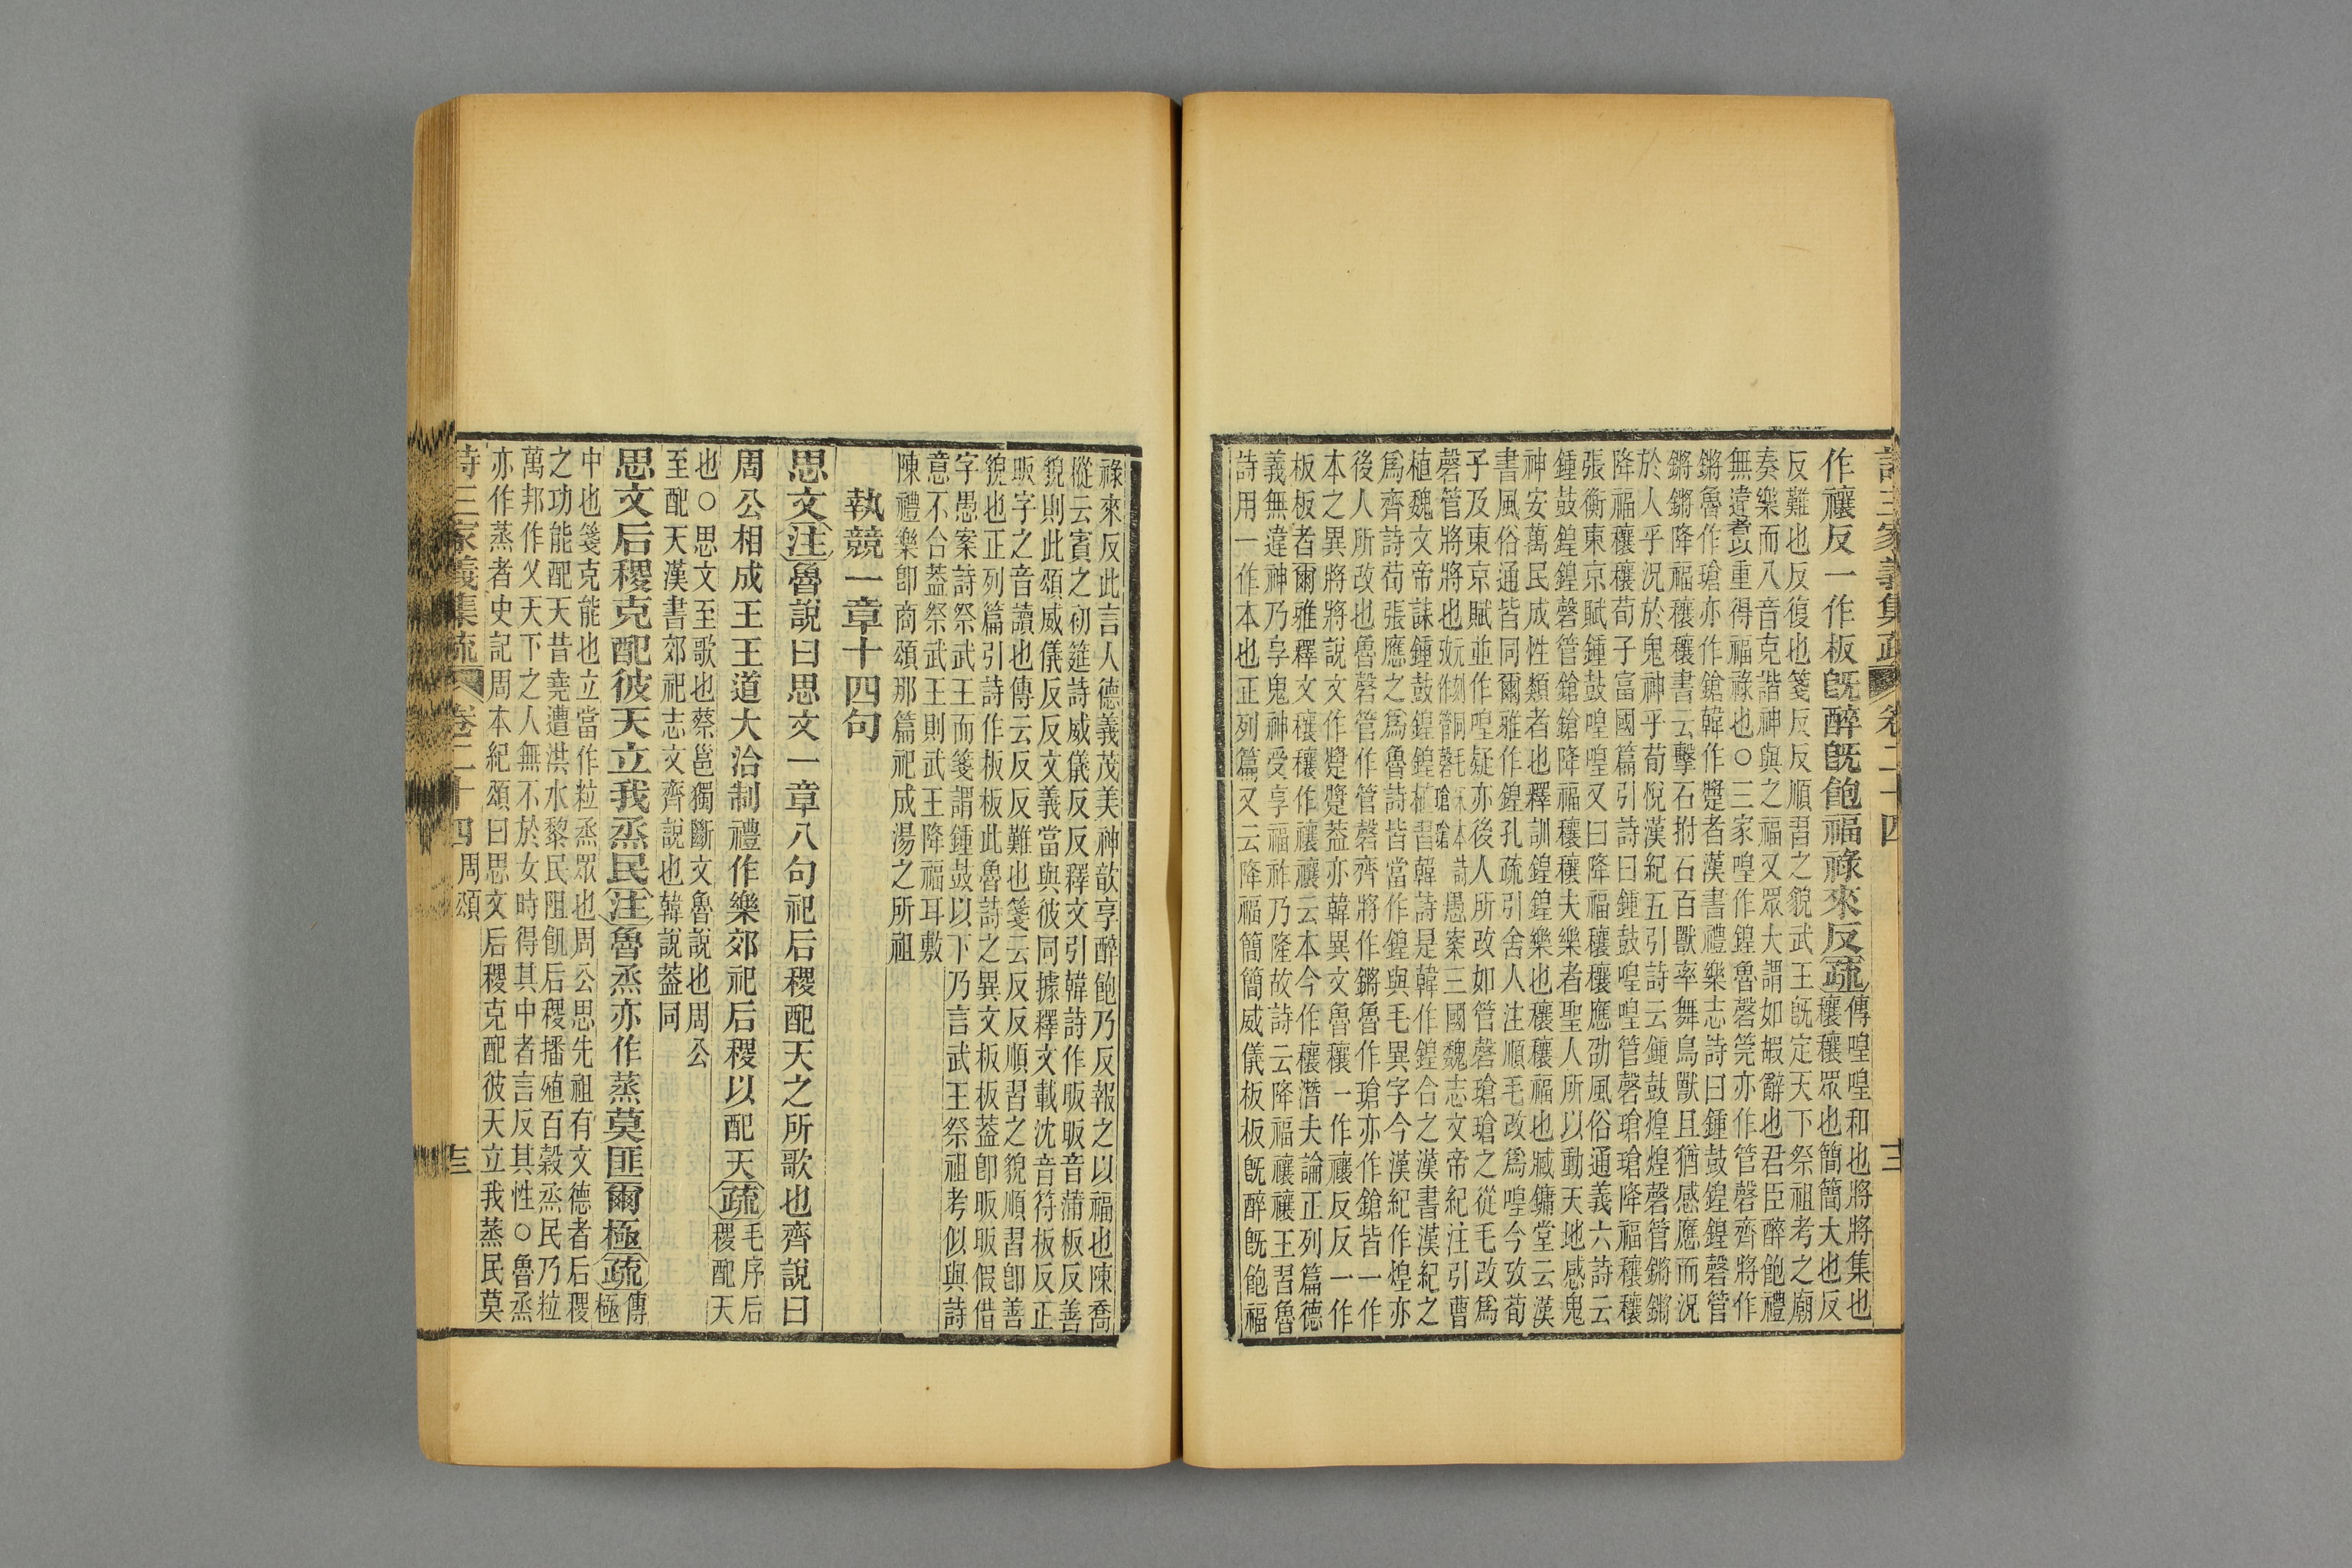 詩三家義集疏 卷二十四 十二
作禳反一作板旣醉旣飽福祿來反疏傳喤喤和也將將集也
穰穰眾也簡簡大也反
反難也反復也箋反反順習之貌武王旣定天下祭祖考之廟
奏樂而八音克諧神與之福又眾大謂如嘏辭也君臣醉飽禮
無違者以重得福祿也○三家喤作鍠魯磬筦亦作管磬齊將作
鏘魯作瑲亦作鎗韓作躄者漢書禮樂志詩曰鍾鼓鍠鍠磬管
鏘鏘降福穰穰書云擊石拊石百獸率舞鳥獸且猶感應而況
於人乎況於鬼神乎荀悅漢紀五引詩云鍾鼓煌煌磬管鏘鏘
降福穰穰荀子富國篇引詩曰鍾鼓喤喤管磬瑲瑲降福穰穰
張衡東京賦鍾鼓喤喤又曰降福穰穰應劭風俗通義六詩云
鍾鼓鍠鍠磬管鎗鎗降福穰穰夫樂者聖人所以動天地感鬼
神安萬民成性類者也釋訓鍠鍠樂也穰穰福也臧鏞堂云漢
書風俗通皆同爾雅作鍠孔疏引舍人注順毛改爲喤今攷荀
子及東京賦並作喤疑亦後人所改如管磬瑲瑲之從毛改爲
磬管將將也
愚案三國魏志文帝紀注引曹
植魏文帝誄鍾鼓鍠鍠植習韓詩是韓作鍠合之漢書漢紀之
爲齊詩荀張應之爲魯詩皆當作鍠與毛異字今漢紀作煌亦
後人所改也魯磬管作管磬齊將作鏘魯作瑲亦作鎗皆一作
本之異將將說文作躄躄葢亦韓異文魯穰一作禳反反一作
板板者爾雅釋文穰穰作禳禳云本今作穰潛夫論正列篇德
義無違神乃享鬼神受享福祚乃隆故詩云降福禳禳王習魯
詩用一作本也正列篇又云降福簡簡威儀板板旣醉旣飽福
祿來反此言人德義茂美神歆享醉飽乃反報之以福也陳喬
樅云賓之初筵詩威儀反反釋文引韓詩作昄昄音蒲板反善
貌則此頌威儀反反文義當與彼同據釋文載沈音符板反正
昄字之音讀也傳云反反難也箋云反反順習之貌順習卽善
貌也正列篇引詩作板板此魯詩之異文板板葢卽昄昄假借
字愚案詩祭武王而箋謂鍾鼓以下乃言武王祭祖考似與詩
意不合葢祭武王則武王降福耳敷
陳禮樂卽商頌那篇祀成湯之所祖
執競一章十四句
思文注魯說曰思文一章八句祀后稷配天之所歌也齊說曰
周公相成王王道大洽制禮作樂郊祀后稷以配天疏毛序后
稷配天
也○思文至歌也蔡邕獨斷文魯說也周公
至配天漢書郊祀志文齊說也韓說葢同
思文后稷克配彼天立我烝民注魯烝亦作蒸莫匪爾極疏傳
極
中也箋克能也立當作粒烝眾也周公思先祖有文德者后稷
之功能配天昔堯遭洪水黎民阻飢后稷播殖百穀烝民乃粒
萬邦作乂天下之人無不於女時得其中者言反其性○魯烝
亦作蒸者史記周本紀頌曰思文后稷克配彼天立我蒸民莫
詩三家義集疏 卷二十四 周頌 十三